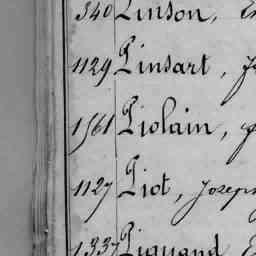 340 Linson, E
1129 Linsart, J
1561 Liolain, J
1127 Liot, Joseph
1337 Liquand E